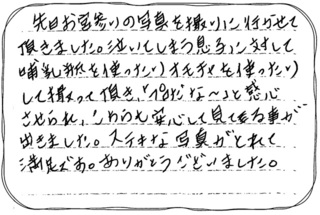 先日お宮参りの写真を撮りに行かせて
頂きました。泣いてしまう息子に対して
哺乳瓶を使ったりオモチャを使ったり
して撮って頂き、"プロだな〜"と感心
させられ、こちらも安心して見てる事が
出きました。ステキな写真がとれて
満足です。ありがとうございました。